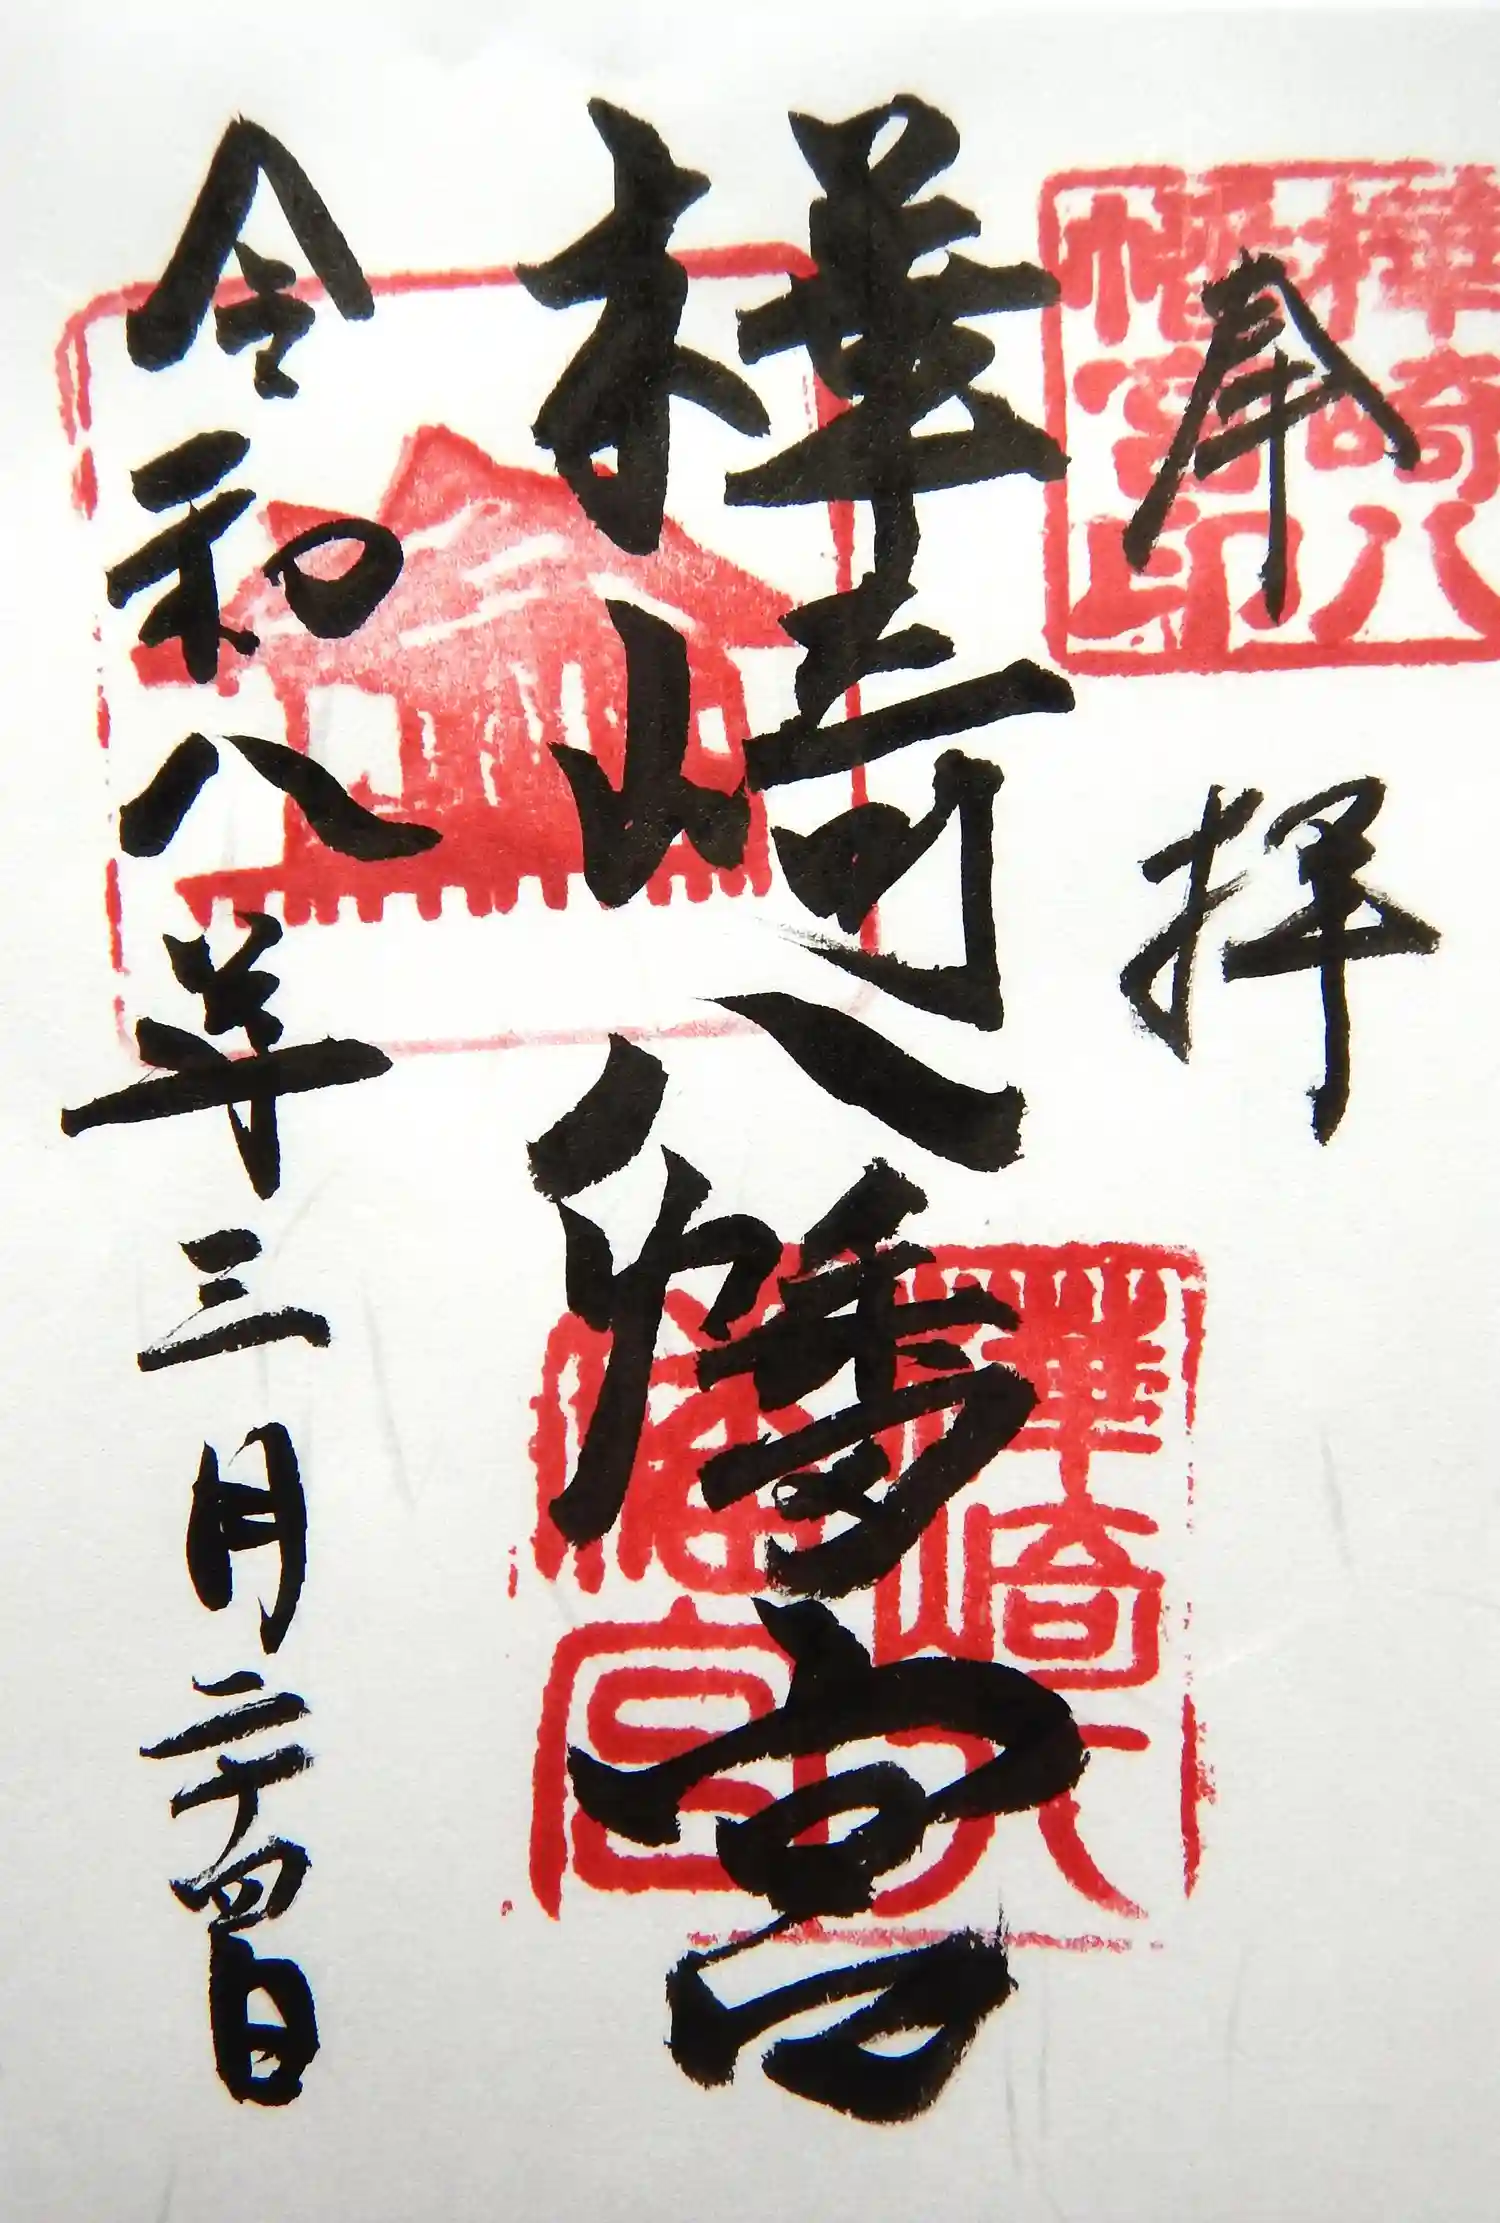 奉拝
樺崎八幡宮
令和八年三月二十四日
樺崎八
幡宮印
樺崎八
幡宮